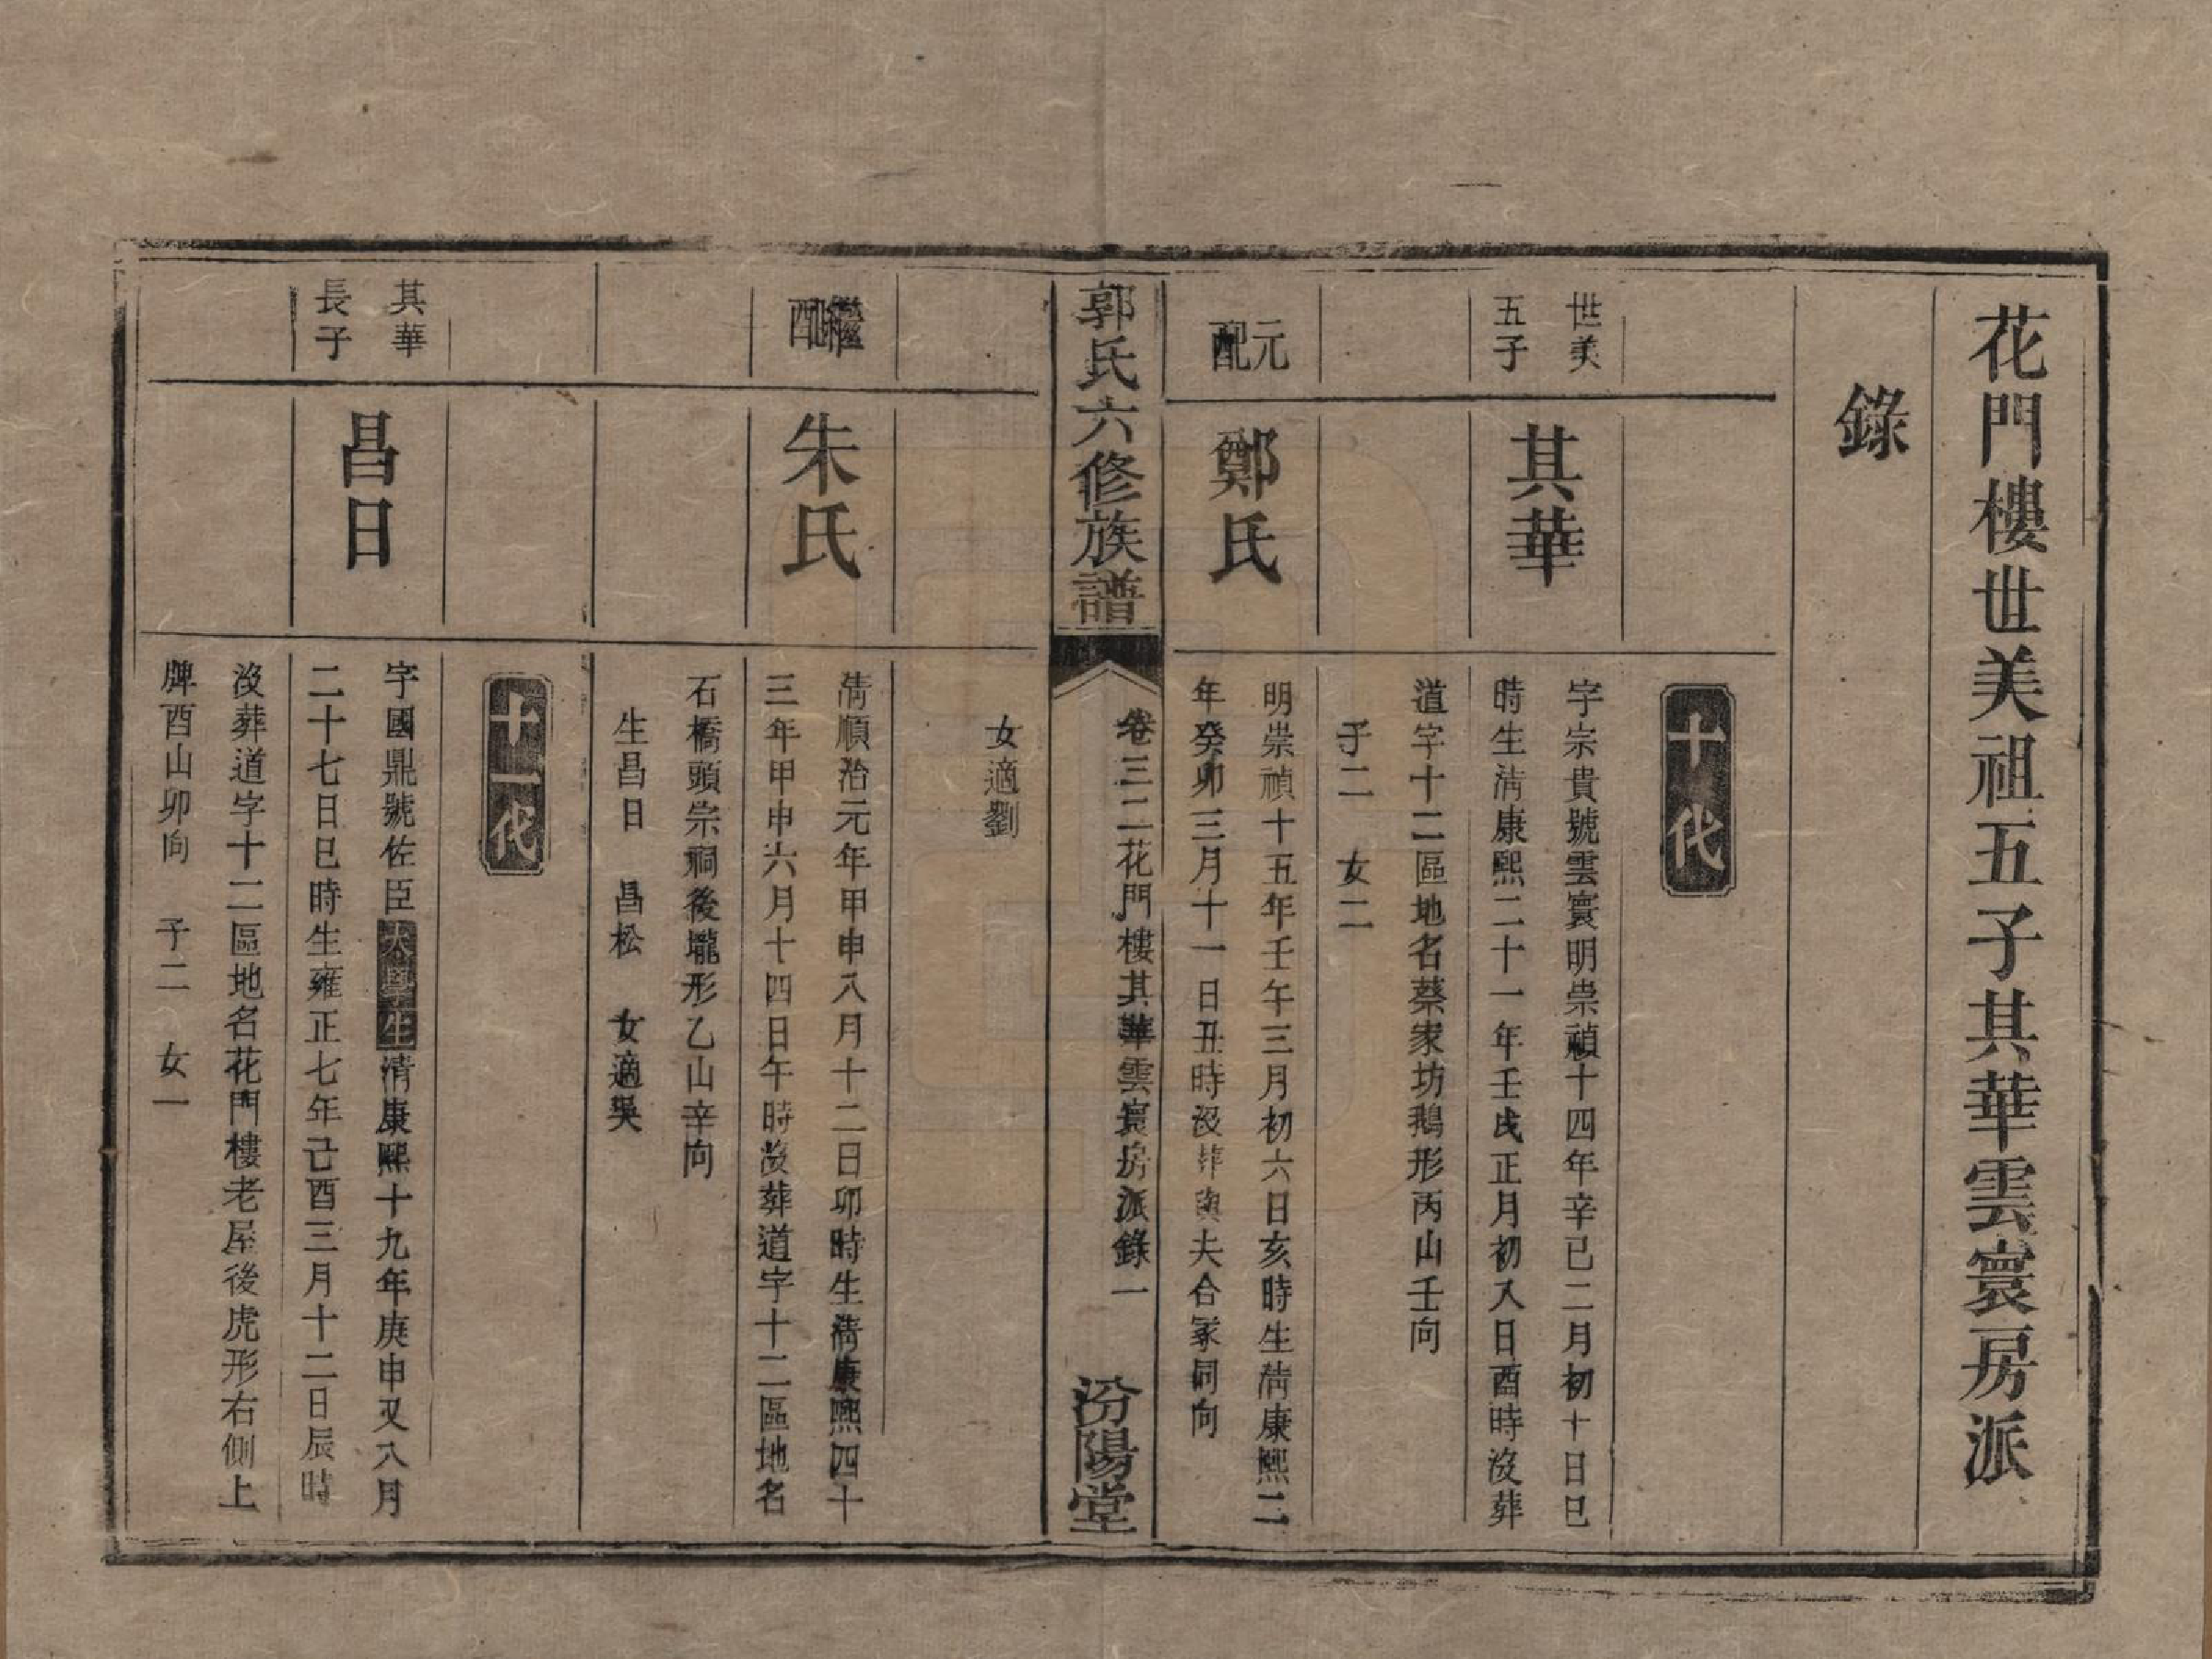 花門樓世美祖五子其華雲寰房派
錄
十代
世美
五子
其華
字宗貴號雲寰明崇禎十四年辛已二月初十日巳
時生清康熙二十一年壬戌正月初八日酉時沒葬
道字十二區地名蔡家坊鵝形丙山壬向
子二　女二
元配
鄭氏
明崇禎十五年壬午三月初六日亥時生清康熙二
年癸卯三月十一日丑時沒葬與夫合冢同向
郭氏六修族譜
卷三二花門樓其華雲寰房派錄一
汾陽堂
女適劉
繼配
朱氏
清順治元年甲申八月十二日卯時生清康熙四十
三年甲申六月十四日午時沒葬道字十二區地名
石橋頭宗祠後壠形乙山辛向
生昌日　昌松　女適吳
十一代
其華
長子
昌日
字國鼎號佐臣太學生清康熙十九年庚申又八月
二十七日巳時生雍正七年己酉三月十二日辰時
沒葬道字十二區地名花門樓老屋後虎形右側上
牌酉山卯向　子二　女一